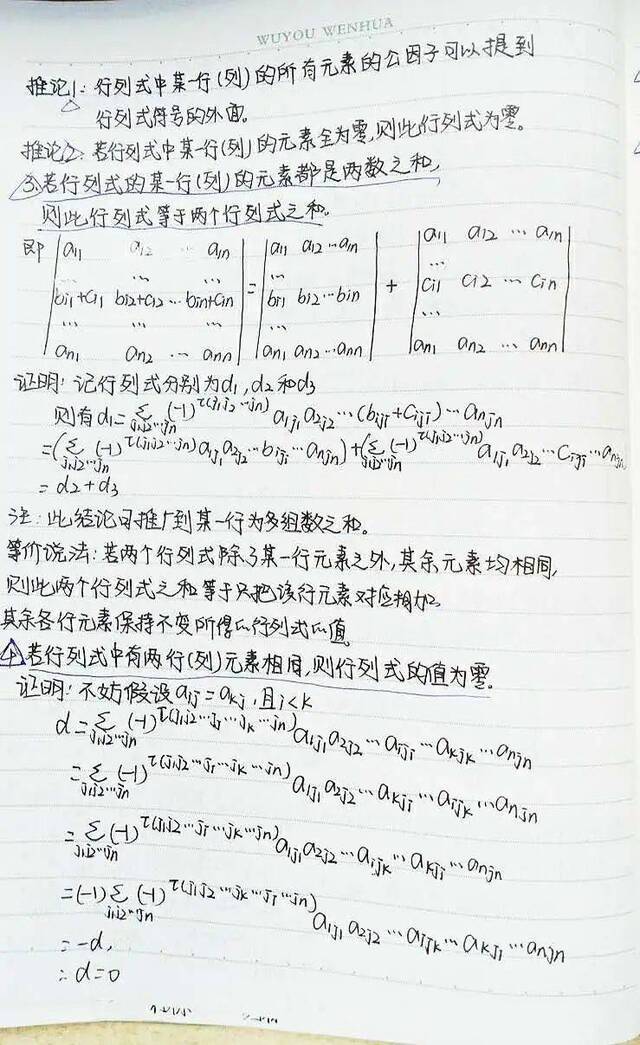 WUYOU WENHUA
推论1: 行列式中某一行(列)的所有元素的公因子可以提到
行列式符号的外面。
推论2: 若行列式中某一行(列)的元素全为零,则此行列式为零。
③若行列式的某一行(列)的元素都是两数之和,
则此行列式等于两个行列式之和。
即 |a11 a12 … a1n| |a11 a12 … a1n| |a11 a12 … a1n|
|… … …| |…| |…|
|bi1+ci1 bi2+ci2 … bin+cin| = |bi1 bi2 … bin| + |ci1 ci2 … cin|
|… … …| |…| |…|
|an1 an2 … ann| |an1 an2 … ann| |an1 an2 … ann|
证明: 记行列式分别为d1, d2和d3
则有d1=∑_{j1j2…jn} (-1)^{τ(j1j2…jn)} a1j1 a2j2 … (biji+ciji) … anjn
=(∑_{j1j2…jn} (-1)^{τ(j1j2…jn)} a1j1 a2j2 … biji … anjn)+(∑_{j1j2…jn} (-1)^{τ(j1j2…jn)} a1j1 a2j2 … ciji … anjn
= d2+d3
注: 此结论可推广到某一行为多组数之和。
等价说法: 若两个行列式除了某一行元素之外,其余元素均相同,
则此两个行列式之和等于只把该行元素对应相加,
其余各行元素保持不变所得的行列式的值
4 若行列式中有两行(列)元素相同,则行列式的值为零。
证明: 不妨假设 aij=akj,且i<k
d=∑_{j1j2…jn} (-1)^{τ(j1j2…ji…jk…jn)} a1j1 a2j2 … aiji … akjk … anjn
=∑_{j1j2…jn} (-1)^{τ(j1j2…ji…jk…jn)} a1j1 a2j2 … akji … aijk … anjn
=∑_{j1j2…jn} (-1)^{τ(j1j2…ji…jk…jn)} a1j1 a2j2 … aijk … akji … anjn
=(-1)∑_{j1j2…jn} (-1)^{τ(j1j2…jk…ji…jn)} a1j1 a2j2 … aijk … akji … anjn
=-d,
∴ d=0